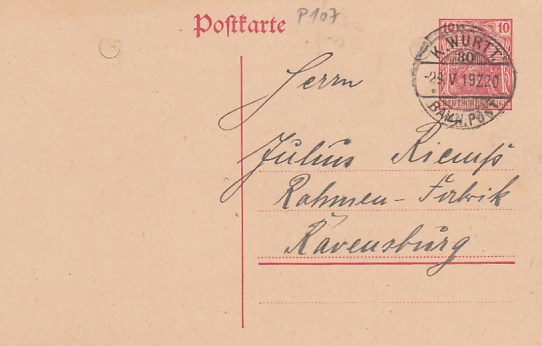 Postkarte
P107
10
K. WÜRTT.
80
-29. V 19220
BAHN.POST
DEUTSCHES REICH
Herrn
Julius Kiemps
Rahmen-Fabrik
Ravensburg